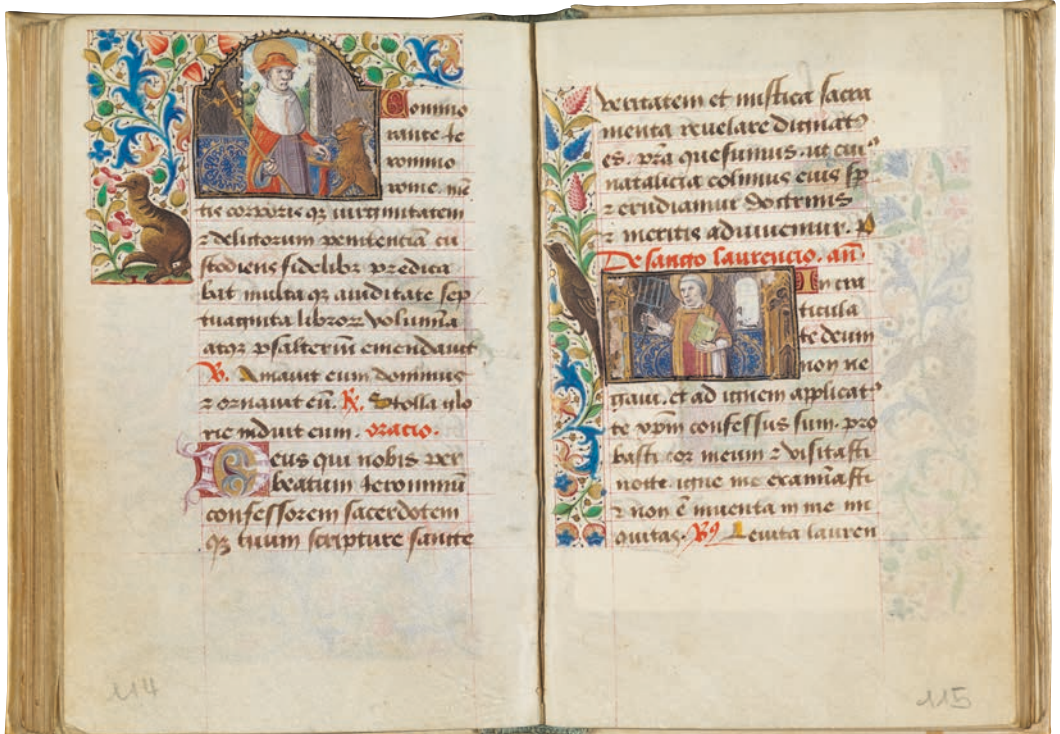 Commo
rante Je
ronimo
rome. mē
tis corporis qꝫ uirginitatem
⁊ delictorum penitenciā cu
stodiens fidelibꝫ predica
bat multaqꝫ auiditate sep
tuaginta libroꝝ volumīa
atqꝫ psalteriū emendauit
Amauit eum dominus
⁊ ornauit eū. Stolla glo
rie induit eum. oratio.
Deus qui nobis per
beatum Jeronimū
confessorem sacerdotem
qꝫ tuum scripture sancte
114
veritatem et mistica sacra
menta reuelare dignatꝰ
es. pͣa quesumus. ut cuiꝰ
natalicia colimus eius sp̄
⁊ erudiamur doctrinis
⁊ meritis adiuuemur. p
De sancto laurencio. an̄
In cra
ticula
te deum
non ne
gaui. et ad ignem applicatꝰ
te xpm confessus sum. pro
basti cor meum ⁊ visitasti
nocte igne me examīasti
⁊ non ē inuenta in me ini
quitas. Leuita lauren
115